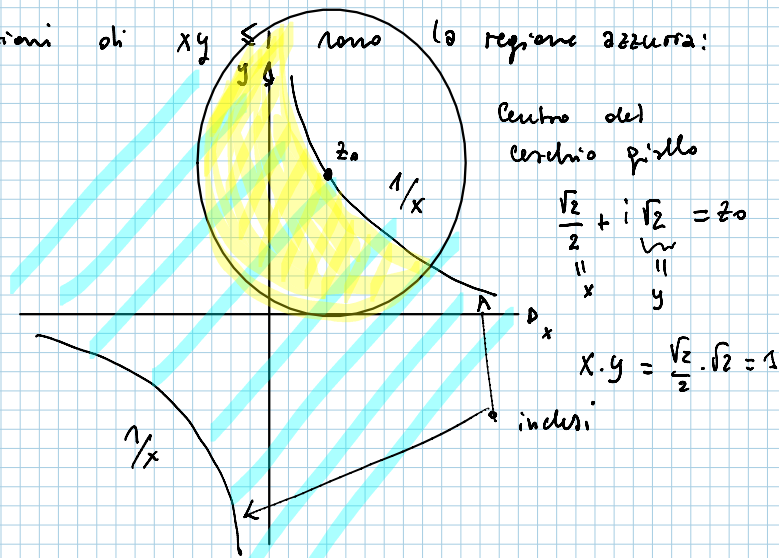 ioni di xy ≤ 1 sono la regione azzurra:
y
Centro del
cerchio giallo
z₀
1/x
√2/2 + i √2 = z₀
" "
x y
x
x · y = √2/2 · √2 = 1
inclusi
1/x